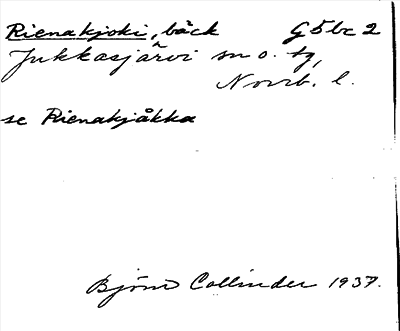 Rienakjoki, bäck G5bc2
Jukkasjärvi sn o. tg,
Norrb. l.
se Rienakjåkka
Björn Collinder 1937.